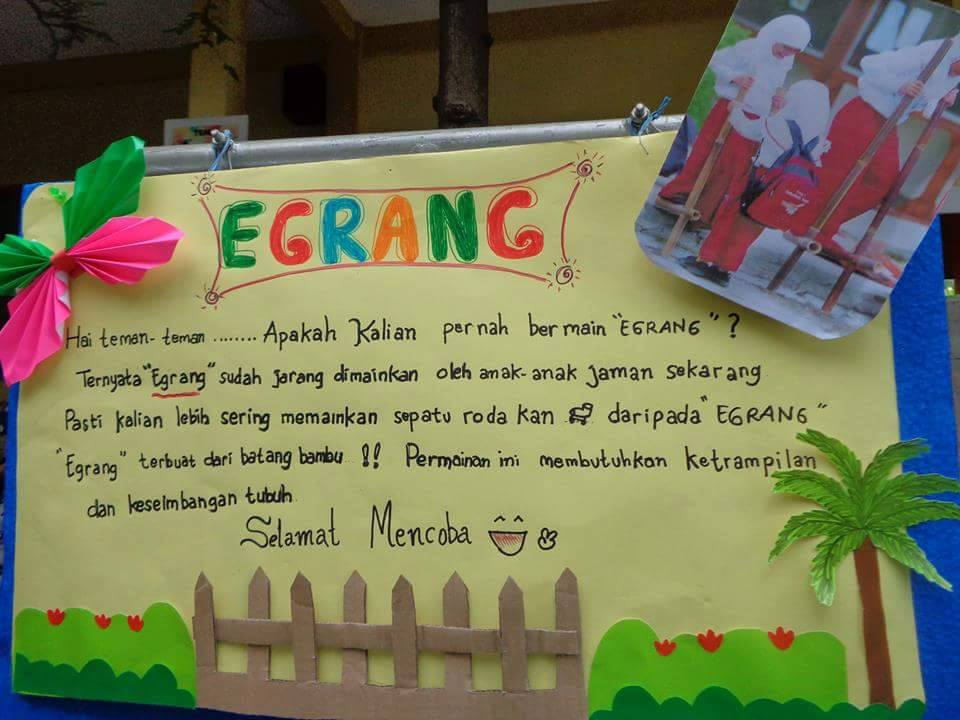 EGRANG
Hai teman-teman ........ Apakah Kalian pernah bermain "EGRANG" ?
Ternyata "Egrang" sudah jarang dimainkan oleh anak-anak jaman sekarang.
Pasti kalian lebih sering memainkan sepatu roda kan daripada "EGRANG"
"Egrang" terbuat dari batang bambu !! Permainan ini membutuhkan ketrampilan
dan keseimbangan tubuh.
Selamat Mencoba